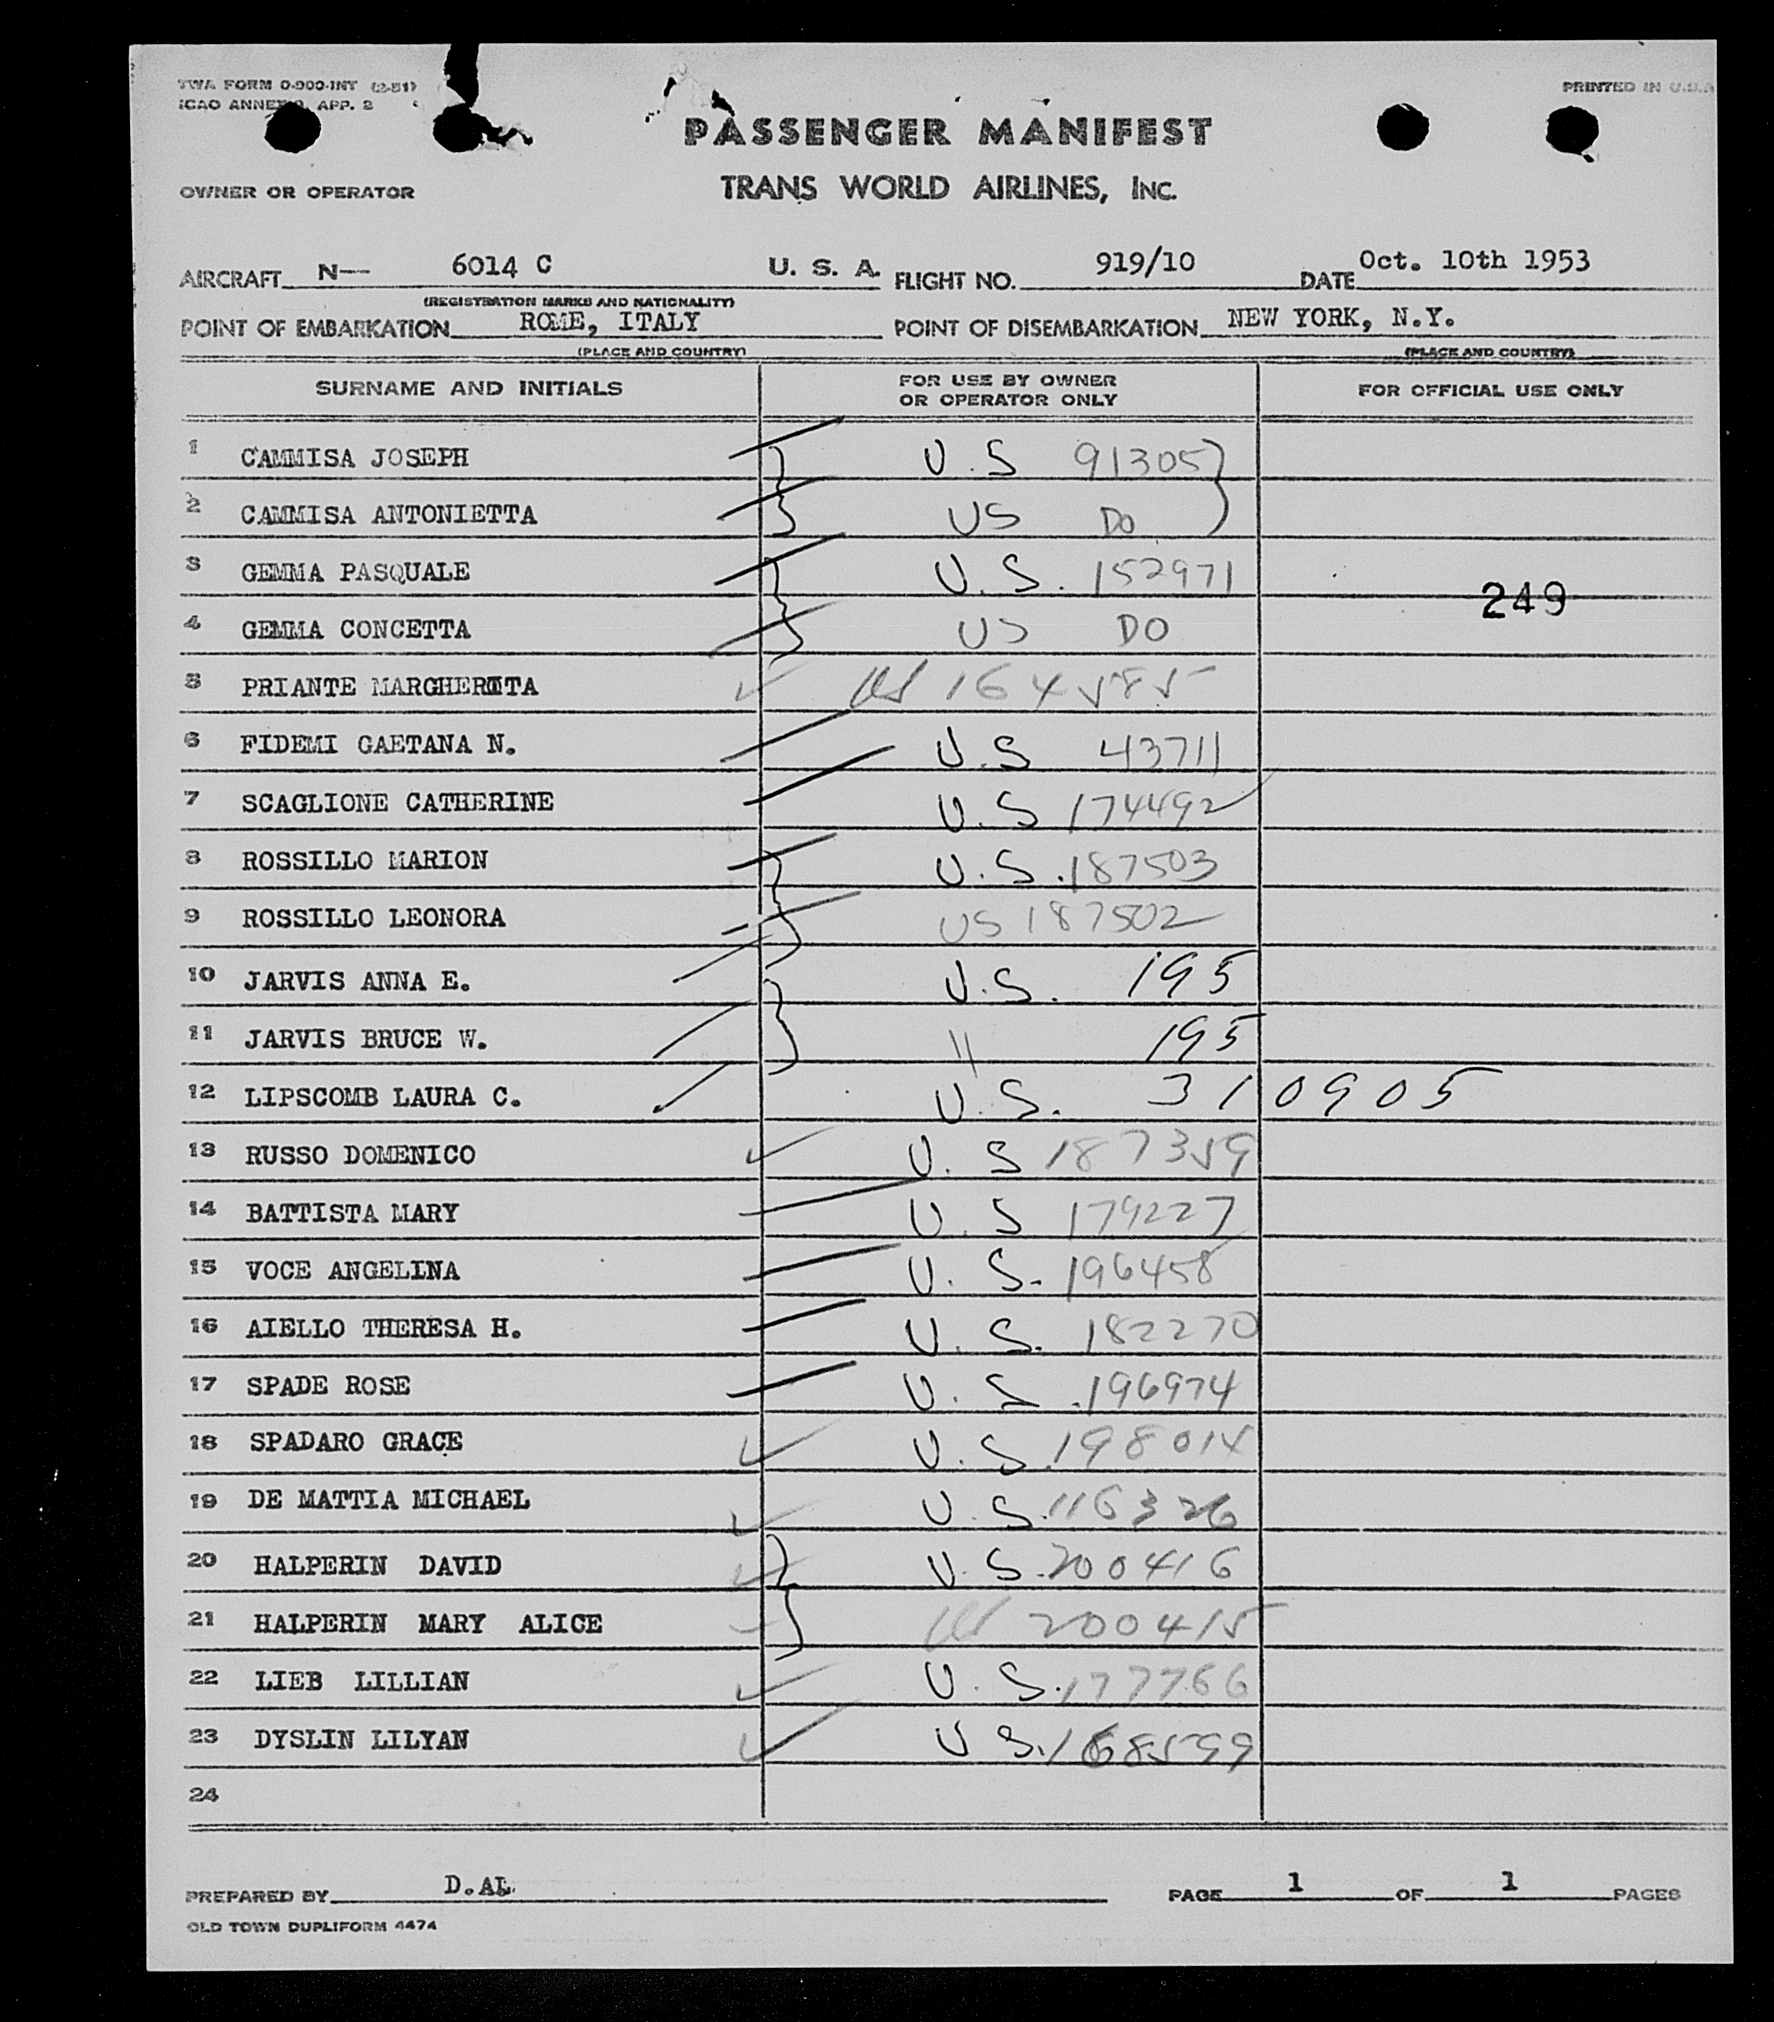 TWA FORM 0-900-INT (2-51)
ICAO ANNEX 9, APP. 2
PRINTED IN U.S.A.
PASSENGER MANIFEST
OWNER OR OPERATOR
TRANS WORLD AIRLINES, INC.
AIRCRAFT N-- 6014 C U. S. A. FLIGHT NO. 919/10 DATE Oct. 10th 1953
(REGISTRATION MARKS AND NATIONALITY)
POINT OF EMBARKATION ROME, ITALY POINT OF DISEMBARKATION NEW YORK, N.Y.
(PLACE AND COUNTRY) (PLACE AND COUNTRY)
SURNAME AND INITIALS FOR USE BY OWNER OR OPERATOR ONLY FOR OFFICIAL USE ONLY
1 CAMMISA JOSEPH U.S 91305
2 CAMMISA ANTONIETTA US DO
3 GEMMA PASQUALE U.S. 152971
249
4 GEMMA CONCETTA US DO
5 PRIANTE MARGHERITA US 164585
6 FIDEMI GAETANA N. U.S 43711
7 SCAGLIONE CATHERINE U.S 174492
8 ROSSILLO MARION U.S. 187503
9 ROSSILLO LEONORA US 187502
10 JARVIS ANNA E. U.S. 195
11 JARVIS BRUCE W. " 195
12 LIPSCOMB LAURA C. U.S. 310905
13 RUSSO DOMENICO U.S 187359
14 BATTISTA MARY U.S 179227
15 VOCE ANGELINA U.S. 196458
16 AIELLO THERESA H. U.S. 182270
17 SPADE ROSE U.S. 196974
18 SPADARO GRACE U.S. 198014
19 DE MATTIA MICHAEL U.S. 116326
20 HALPERIN DAVID U.S. 200416
21 HALPERIN MARY ALICE US 200415
22 LIEB LILLIAN U.S. 177766
23 DYSLIN LILYAN U S. 168599
24
PREPARED BY D.AL. PAGE 1 OF 1 PAGES
OLD TOWN DUPLIFORM 4474